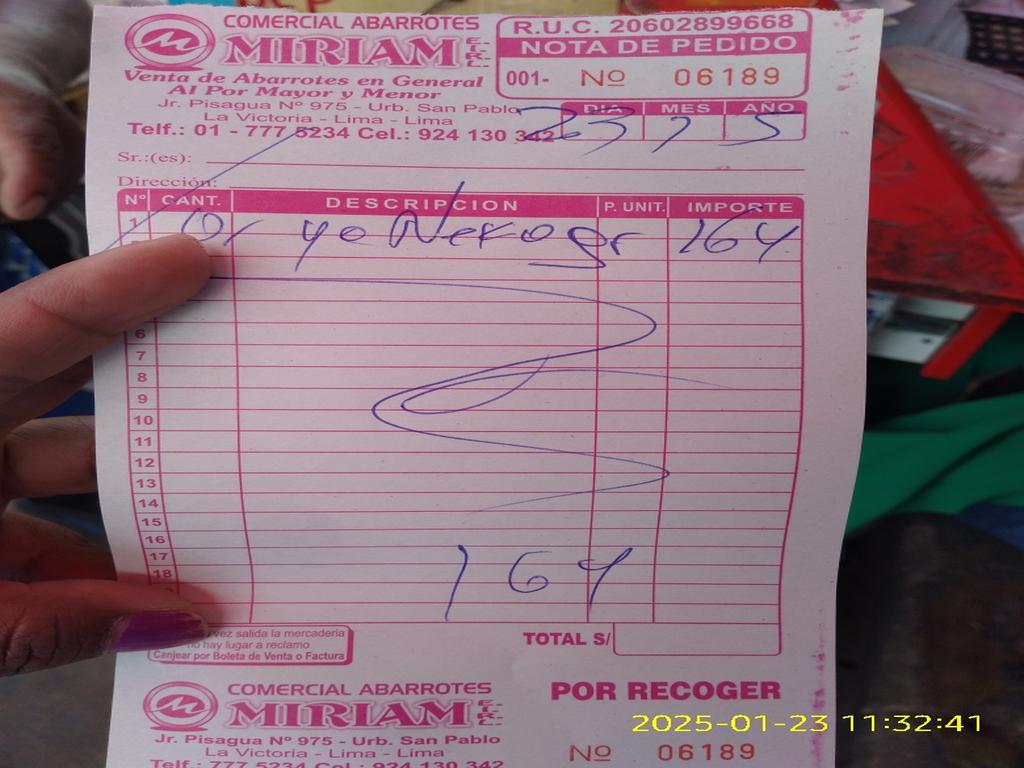 COMERCIAL ABARROTES
MIRIAM E.I.R.L.
Venta de Abarrotes en General
Al Por Mayor y Menor
Jr. Pisagua Nº 975 - Urb. San Pablo
La Victoria - Lima - Lima
Telf.: 01 - 777 5234 Cel.: 924 130 342
R.U.C. 20602899668
NOTA DE PEDIDO
001- Nº 06189
DIA MES AÑO
23 5
Sr.:(es):
Dirección:
Nº CANT. DESCRIPCION P. UNIT. IMPORTE
1 164
6
7
8
9
10
11
12
13
14
15
16
17
18
164
vez salida la mercadería
no hay lugar a reclamo
Canjear por Boleta de Venta o Factura
TOTAL S/
COMERCIAL ABARROTES
MIRIAM E.I.R.L.
Jr. Pisagua Nº 975 - Urb. San Pablo
La Victoria - Lima - Lima
Telf.: 777 5234 Cel.: 924 130 342
POR RECOGER
Nº 06189
2025-01-23 11:32:41